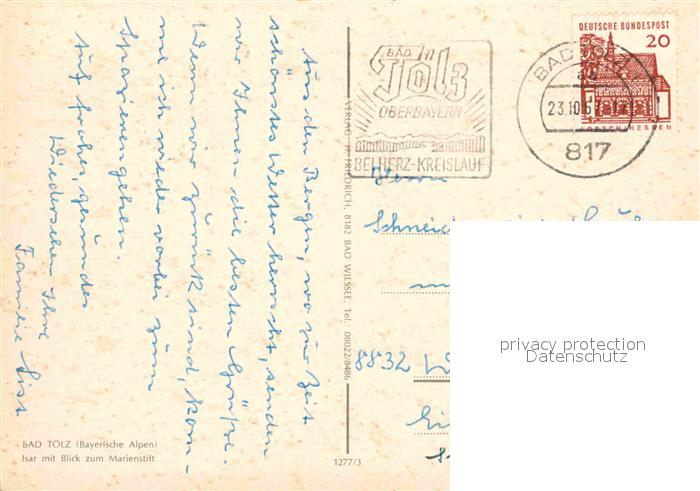 Aus den Bergen, wo zur Zeit
schönstes Wetter herrscht, senden
wir Ihnen die besten Grüße.
Wenn wir zurück sind, kom-
me ich wieder vorbei zum
Spazierengehen.
Auf frohes, gesundes
Wiedersehen Ihre
Familie
BAD TÖLZ (Bayerische Alpen)
Isar mit Blick zum Marienstift
VERLAG: H. FRIEDRICH, 8182 BAD WIESSEE, Tel. 08022/8486
1277/3
BAD
Tölz
OBERBAYERN
BEI HERZ-KREISLAUF
BAD TÖLZ
23.10.6
817
DEUTSCHE BUNDESPOST
20
LORSCH/HESSEN
Herrn
8832
privacy protection
Datenschutz